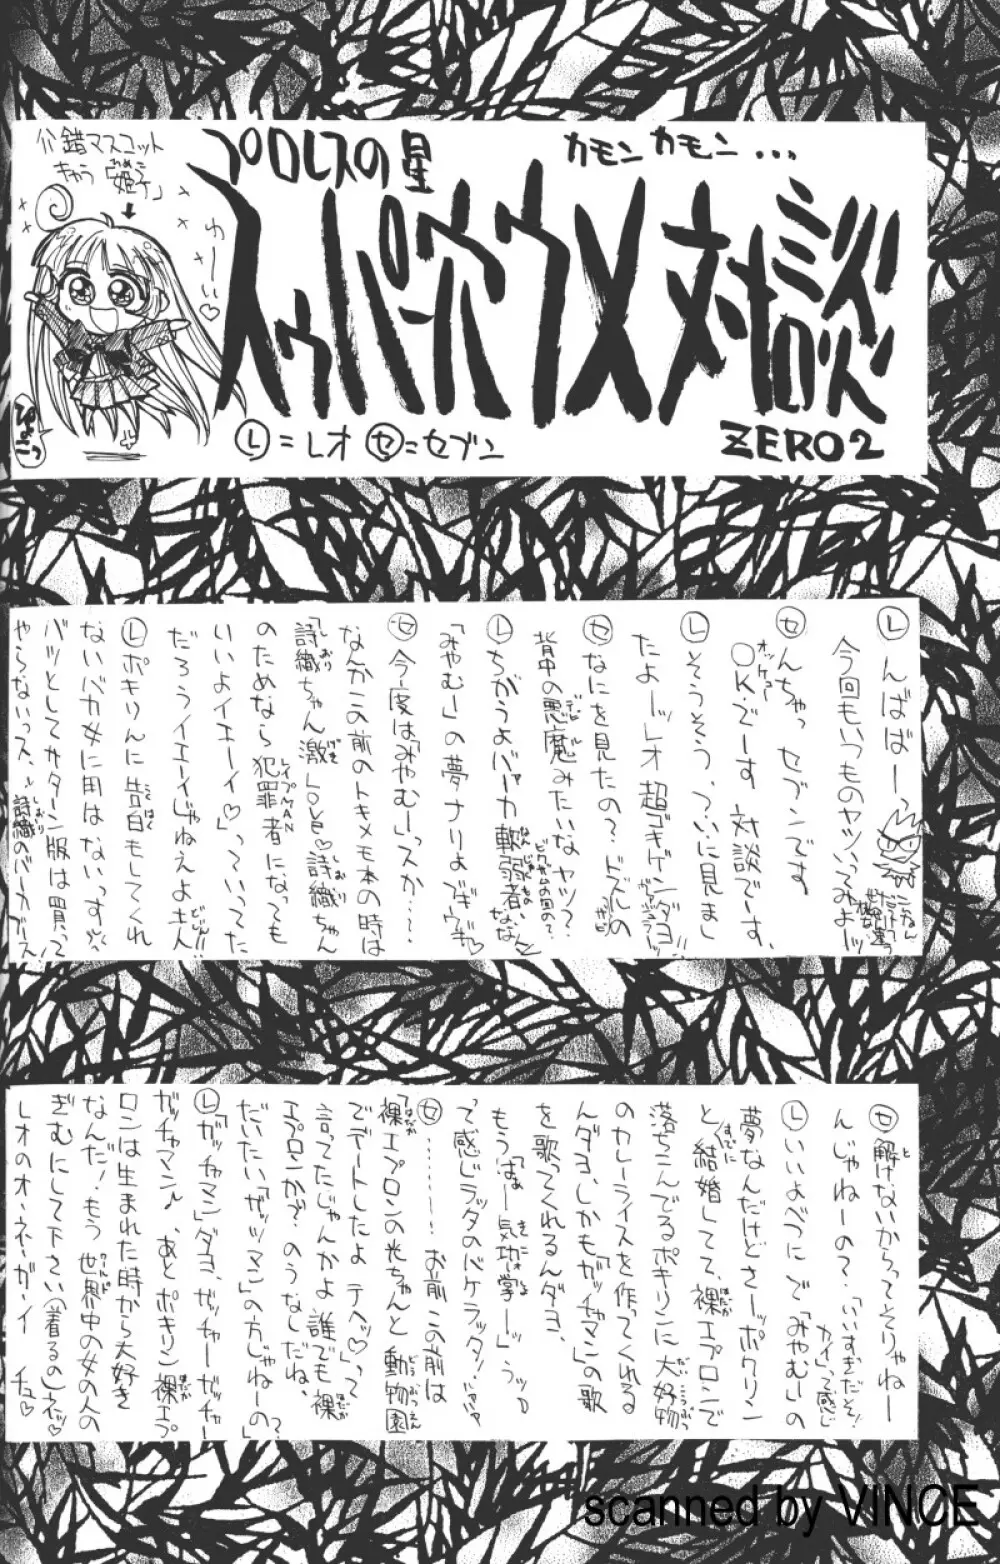 介錯マスコット
きゃら「姫子」
ひめこ
わーい♡
ぴょこっ
プロレスの星
カモン カモン...
スゥパーホウメ対談
ZERO2
Ⓛ=レオ ㋝=セブン
Ⓛんばばー?
今回もいつものヤツいってみよーッ
㋝んちゃっ セブンです
OKでーす 対談でーす、
オッケェー
Ⓛそうそう、つーいに見まし
たよーッレオ超ゴキゲンダヨ!!
㋝なにを見たの? ドズルの
背中の悪魔みたいなヤツ?
デビル
ビグザムの回の?
Ⓛちがうよバァーカ軟弱者
「みやむー」の夢ナリよブギウギ♡
㋝今度は「みやむー」っスか…?
なんかこの前のトキメモ本の時は
「詩織ちゃん激Love♡詩織ちゃん
しおり
げき
しおり
のためなら犯罪者になっても
レイプMAN
いいよイエーイ♡」っていってた
だろうイエーイじゃねえよ主人
Ⓛポキりんに告白もしてくれ
こくはく
ないバカ女に用はないっす
バツとしてサターン版は買って
やらないっス、詩織のバーカブース
しおり
㋝解けないからってそりゃねー
と
んじゃねーの?「いいすぎだぞ!
カイ」って感じ
Ⓛいいよべつに で「みやむー」の
夢なんだけどさーッポクリン
と結婚してて、裸エプロンで
すでに
はだか
落ちこんでるポキリンに大好物
だいこうぶつ
のカレーライスを作ってくれる
んダヨ、しかも「ガッチャマン」の歌
を歌ってくれるんダヨ、
もう「はぁー気功掌ーッ」うッッ
きこうしょう
って感じラッタのバケラッタッ!
㋝………! お前この前は
「裸エプロンの光ちゃんと動物園
はだか
どうぶつえん
でデートしたよ テヘッ♡」って
言ってたじゃんかよ 誰でも裸
はだか
エプロンか? のうなしだね、
だいたい「ガッツマン」の方じゃねーの?
Ⓛ「ガッチャマン」ダヨ、ガッチャーガッチャー
ガッチャマン♪、あとポキリン裸エプ
はだか
ロンは生まれた時から大好き
なんだ! もう世界中の女の人の
ワールド
ぎむにして下さい(着るの)ネッ♡
レオのオ・ネ・ガ・イ チュ♡
scanned by VINCE